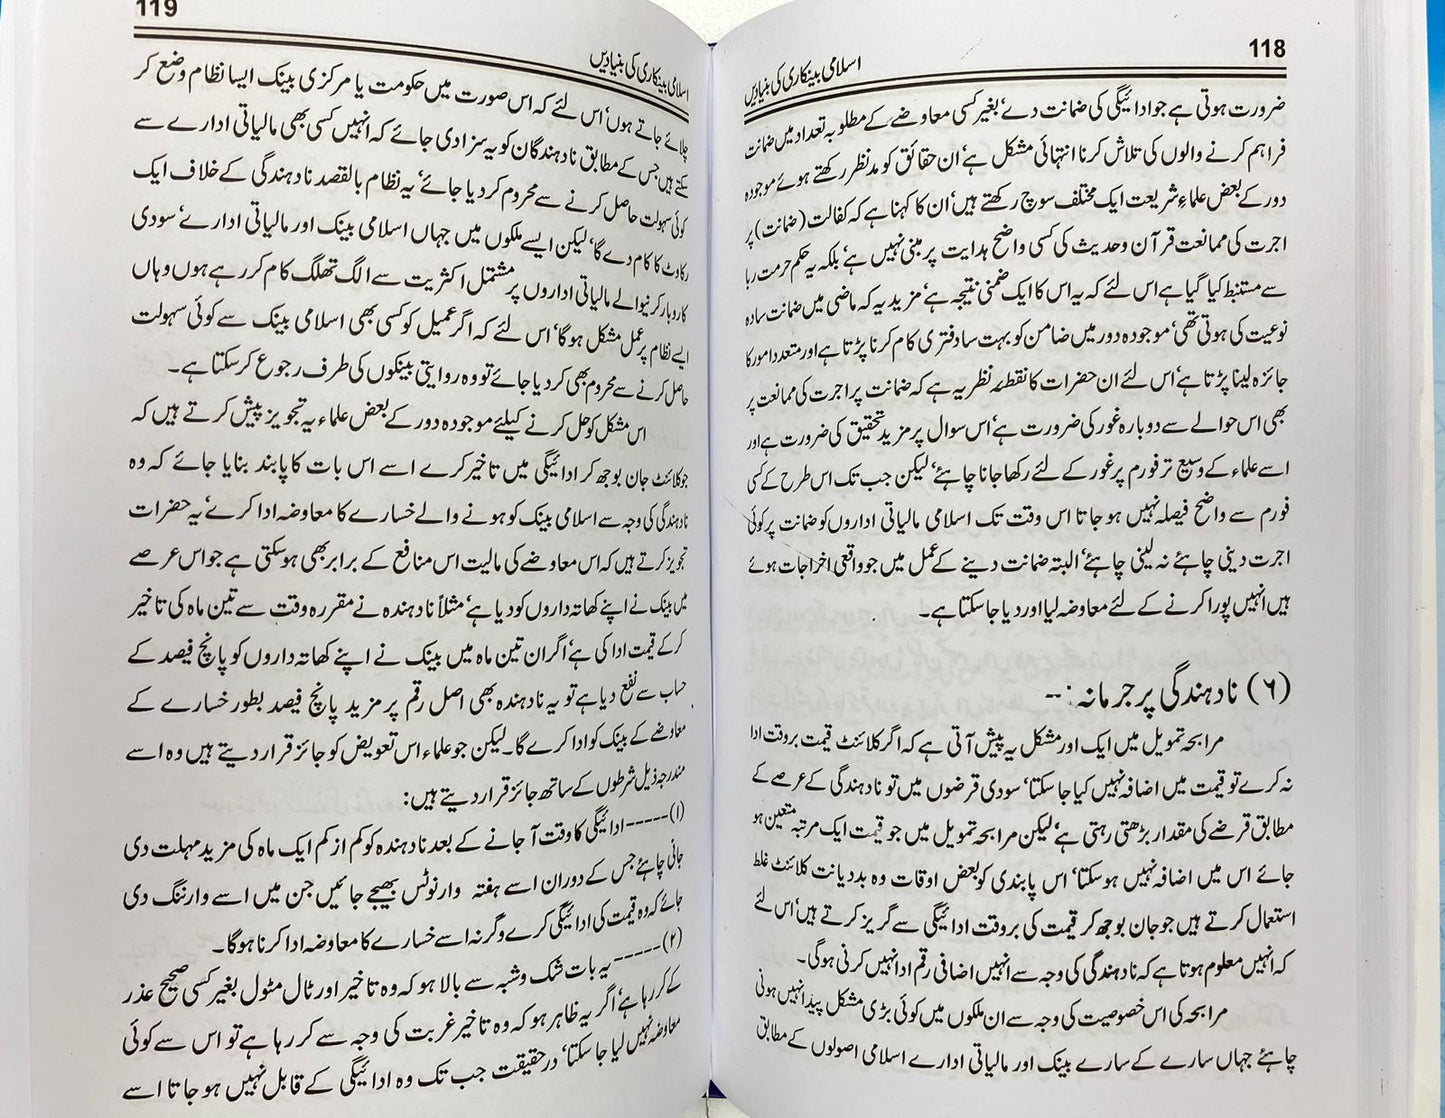 118
اسلامی بینکاری کی بنیادیں
ضرورت ہوتی ہے جو ادائیگی کی ضمانت دے، بغیر کسی معاوضے کے مطلوبہ تعداد میں ضمانت
فراہم کرنے والوں کی تلاش کرنا انتہائی مشکل ہے، ان حقائق کو مدنظر رکھتے ہوئے موجودہ
دور کے بعض علماءِ شریعت ایک مختلف سوچ رکھتے ہیں، ان کا کہنا ہے کہ کفالت (ضمانت) پر
اجرت کی ممانعت قرآن وحدیث کی کسی واضح ہدایت پر مبنی نہیں ہے، بلکہ یہ حکم حرمت ربا
سے مستنبط کیا گیا ہے اس لئے کہ یہ اس کا ایک ضمنی نتیجہ ہے، مزید یہ کہ ماضی میں ضمانت سادہ
نوعیت کی ہوتی تھی، موجودہ دور میں ضامن کو بہت سا دفتری کام کرنا پڑتا ہے اور متعدد امور کا
جائزہ لینا پڑتا ہے، اس لئے ان حضرات کا نقطۂ نظر یہ ہے کہ ضمانت پر اجرت کی ممانعت پر
بھی اس حوالے سے دوبارہ غور کی ضرورت ہے، اس سوال پر مزید تحقیق کی ضرورت ہے اور
اسے علماء کے وسیع تر فورم پر غور کے لئے رکھا جانا چاہئے، لیکن جب تک اس طرح کے کسی
فورم سے واضح فیصلہ نہیں ہو جاتا اس وقت تک اسلامی مالیاتی اداروں کو ضمانت پر کوئی
اجرت دینی چاہئے نہ لینی چاہئے، البتہ ضمانت دینے کے عمل میں جو واقعی اخراجات ہوئے
ہیں انہیں پورا کرنے کے لئے معاوضہ لیا اور دیا جا سکتا ہے۔
(۶) نادہندگی پر جرمانہ:--
مرابحہ تمویل میں ایک اور مشکل یہ پیش آتی ہے کہ اگر کلائنٹ قیمت بروقت ادا
نہ کرے تو قیمت میں اضافہ نہیں کیا جا سکتا، سودی قرضوں میں تو نادہندگی کے عرصے کے
مطابق قرضے کی مقدار بڑھتی رہتی ہے، لیکن مرابحہ تمویل میں جو قیمت ایک مرتبہ متعین ہو
جائے اس میں اضافہ نہیں ہو سکتا، اس پابندی کو بعض اوقات وہ بددیانت کلائنٹ غلط
استعمال کرتے ہیں جو جان بوجھ کر قیمت کی بروقت ادائیگی سے گریز کرتے ہیں، اس لئے
کہ انہیں معلوم ہوتا ہے کہ نادہندگی کی وجہ سے انہیں اضافی رقم ادا نہیں کرنی ہوگی۔
مرابحہ کی اس خصوصیت کی وجہ سے ان ملکوں میں کوئی بڑی مشکل پیدا نہیں ہونی
چاہئے جہاں سارے کے سارے بینک اور مالیاتی ادارے اسلامی اصولوں کے مطابق
119
اسلامی بینکاری کی بنیادیں
چلائے جاتے ہوں، اس لئے کہ اس صورت میں حکومت یا مرکزی بینک ایسا نظام وضع کر
سکتے ہیں جس کے مطابق نادہندگان کو یہ سزا دی جائے کہ انہیں کسی بھی مالیاتی ادارے سے
کوئی سہولت حاصل کرنے سے محروم کر دیا جائے، یہ نظام بالقصد نادہندگی کے خلاف ایک
رکاوٹ کا کام دے گا، لیکن ایسے ملکوں میں جہاں اسلامی بینک اور مالیاتی ادارے، سودی
کاروبار کرنیوالے مالیاتی اداروں پر مشتمل اکثریت سے الگ تھلگ کام کر رہے ہوں وہاں
ایسے نظام پر عمل مشکل ہوگا، اس لئے کہ اگر عمیل کو کسی بھی اسلامی بینک سے کوئی سہولت
حاصل کرنے سے محروم بھی کر دیا جائے تو وہ روایتی بینکوں کی طرف رجوع کر سکتا ہے۔
اس مشکل کو حل کرنے کیلئے موجودہ دور کے بعض علماء یہ تجویز پیش کرتے ہیں کہ
جو کلائنٹ جان بوجھ کر ادائیگی میں تاخیر کرے اسے اس بات کا پابند بنایا جائے کہ وہ
نادہندگی کی وجہ سے اسلامی بینک کو ہونے والے خسارے کا معاوضہ ادا کرے، یہ حضرات
تجویز کرتے ہیں کہ اس معاوضے کی مالیت اس منافع کے برابر بھی ہو سکتی ہے جو اس عرصے
میں بینک نے اپنے کھاتہ داروں کو دیا ہے، مثلاً نادہندہ نے مقررہ وقت سے تین ماہ کی تاخیر
کر کے قیمت ادا کی ہے، اگر ان تین ماہ میں بینک نے اپنے کھاتہ داروں کو پانچ فیصد کے
حساب سے نفع دیا ہے تو یہ نادہندہ بھی اصل رقم پر مزید پانچ فیصد بطور خسارے کے
معاوضے کے بینک کو ادا کرے گا۔ لیکن جو علماء اس تعویض کو جائز قرار دیتے ہیں وہ اسے
مندرجہ ذیل شرطوں کے ساتھ جائز قرار دیتے ہیں:
(۱)-----ادائیگی کا وقت آ جانے کے بعد نادہندہ کو کم از کم ایک ماہ کی مزید مہلت دی
جانی چاہئے جس کے دوران اسے ہفتہ وار نوٹس بھیجے جائیں جن میں اسے وارننگ دی
جائے کہ وہ قیمت کی ادائیگی کرے وگرنہ اسے خسارے کا معاوضہ ادا کرنا ہوگا۔
(۲)-----یہ بات شک وشبہ سے بالا ہو کہ وہ تاخیر اور ٹال مٹول بغیر کسی صحیح عذر
کے کر رہا ہے، اگر یہ ظاہر ہو کہ وہ تاخیر غربت کی وجہ سے کر رہا ہے تو اس سے کوئی
معاوضہ نہیں لیا جا سکتا، درحقیقت جب تک وہ ادائیگی کے قابل نہیں ہو جاتا اسے